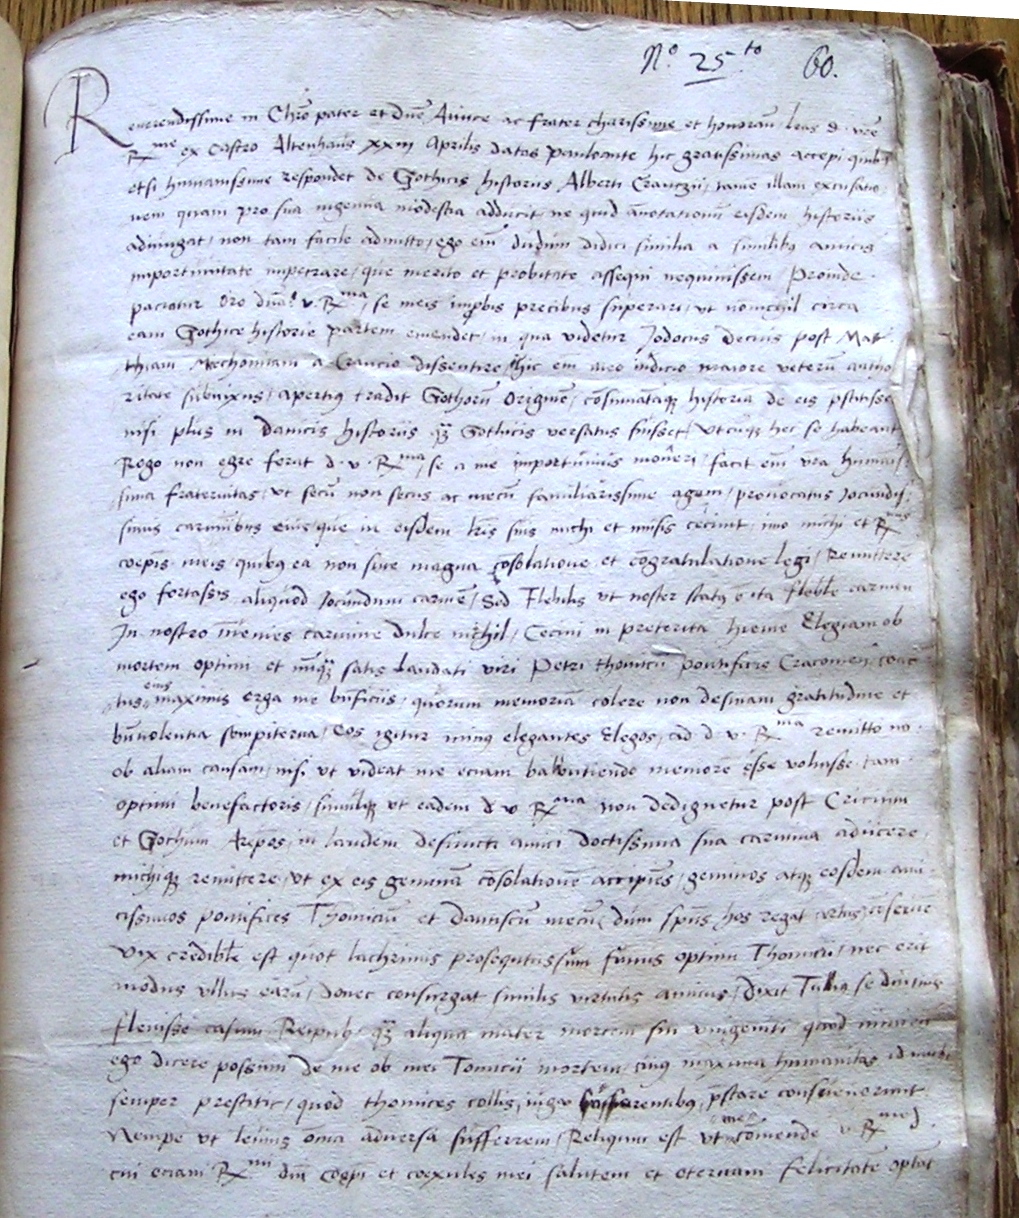 N.º 25.to 60.
Reverendissime in Chro pater et dne Amice ac frater charissime et honoran. Lras d. vre
Rme ex castro Altenhaus xxiii Aprilis datas pauloante hic gratissimas accepi quibus
etsi humanissime respondet de Gothicis historiis Alberti Crantzii, tame illam excusatio-
nem quam pro sua ingenua modestia adducit, ne quid annotationum eisdem historiis
adiungat, non tam facile admitto, ego em dudum didici similia a similibus amicis
importunitate impetrare, que merito et probitate assequi nequivissem. Proinde
patiatur oro dua. v. Rma, se meis improbis precibus superari, ut nonnihil circa
eam Gothice historie partem emendet, in qua videtur Jodocus Decius post Mat-
thiam Mechoviam a Crancio dissentire, hic em meo iudicio maiore veteru autho
ritate subnixus, apertius tradit Gothoru origine, cosumataque historia de eis pstitisset
nisi plus in Danicis historiis quam Gothicis versatus fuisset, utcunque hec se habeant
Rogo non egre ferat d. v. Rma, se a me importunius moveri, facit em vra humanis-
sima fraternitas, ut secu non secus ac mecu familiarissime agam, provocatus Jocundis-
simis carminibus eius, que in eisdem lris suis michi et missis cecinit, imo michi et Rmis
coepis meis, quibus ea non sine magna cosolatione et cogratulatione legi, Remittere
ego fortassis aliquod Jocundum carme, Sed Flebilis ut noster status e ita flebile carmen
In nostro invenies carmine dulce nichil, Cecini in preterita hieme Elegiam ob
mortem optimi et nunquam satis laudati viri Petri thomicii pontificis Cracovien, coac-
tus eius maximis erga me bnficiis, quorum memoria colere non desinam gratitudine et
bnvolentia sempiterna, Eos igitur minus elegantes Elegos, ad d. v. Rma remitto no
ob aliam causam, nisi ut videat me eciam balbutiendo memore esse voluisse tam
optimi benefactoris, simulque ut eadem d. v. Rma non dedignetur post Cricium
et Gothum Aepos, in laudem defuncti amici doctissima sua carmina adiicere,
michique remittere, ut ex eis gemina cosolatione accipiens, geminos atque eosdem ami-
cissimos pontifices Thomiciu et dantiscu mecu, dum spus hos regat artus, conserve
Vix credibile est quot lachrimis prosequutus sum funus optimi Thomicii, nec erit
modus ullus earu, donec consurgat similis virtutis amicus, Dixit Tullius se diutius
flevisse casum Reipub. quam aliqua mater mortem sui unigeniti, quod
ego dicere possum de me ob mei Tomicii mortem, cuius maxima humanitas id michi
semper prestitit, quod thomices collis, iuga parentibus, pstare consueverunt
Nempe ut levius omnia adversa sufferrem, Reliquum est ut me comende v. Rme d.
cui eciam Rmi dni coepi et coexules mei salutem et eternam felicitate optat